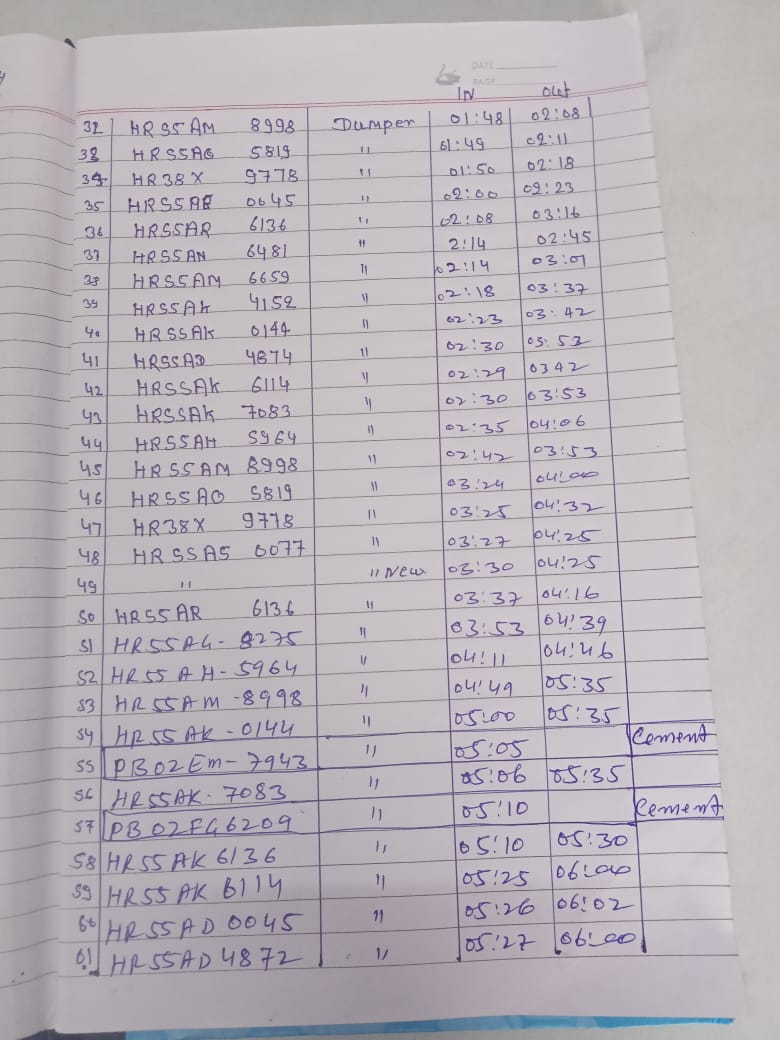 DATE
PAGE
IN OUT
32 HR55AM 8998 Dumper 01:48 02:08
33 HR55AO 5819 " 01:49 02:11
34 HR38X 9778 " 01:50 02:18
35 HR55AE 0045 " 02:00 02:23
36 HR55AR 6136 " 02:08 03:16
37 HR55AN 6481 " 2:14 02:45
38 HR55AM 6659 " 02:14 03:01
39 HR55AK 4152 " 02:18 03:37
40 HR55AK 0144 " 02:23 03:42
41 HR55AD 4874 " 02:30 03:53
42 HR55AK 6114 " 02:29 0342
43 HR55AK 7083 " 02:30 03:53
44 HR55AH 5964 " 02:35 04:06
45 HR55AM 8998 " 02:42 03:53
46 HR55AO 5819 " 03:24 04:00
47 HR38X 9778 " 03:25 04:32
48 HR55AS 0077 " 03:27 04:25
49 " " New 03:30 04:25
50 HR55AR 6136 " 03:37 04:16
51 HR55AG- 8275 " 03:53 04:39
52 HR55 AH- 5964 " 04:11 04:46
53 HR55 AM -8998 " 04:49 05:35
54 HR55 AK -0144 " 05:00 05:35
55 PB02EM- 7943 " 05:05 Cement
56 HR55AK- 7083 " 05:06 05:35
57 PB02FG6209 " 05:10 Cement
58 HR55 AK 6136 " 05:10 05:30
59 HR55 AK 6114 " 05:25 06:00
60 HR55AD 0045 " 05:26 06:02
61 HR55AD 4872 " 05:27 06:00